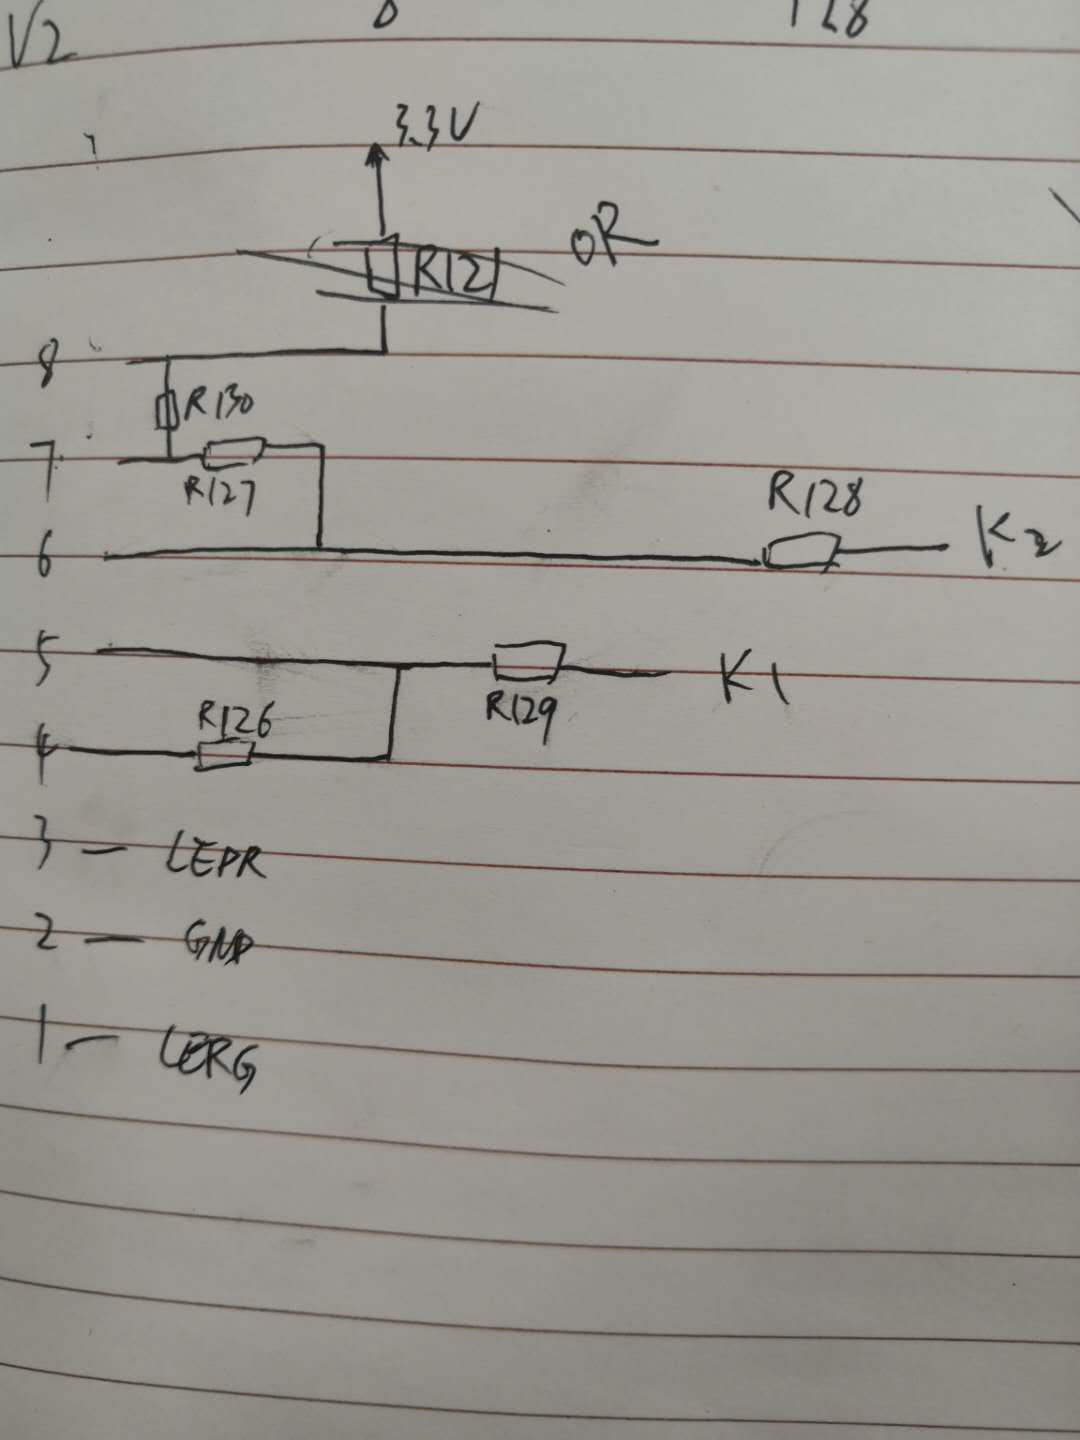 V2
128
3.3V
R121 0R
8
R130
7
R127
R128
6 K2
5 K1
R129
R126
4
3 — LEPR
2 — GND
1 — LERG